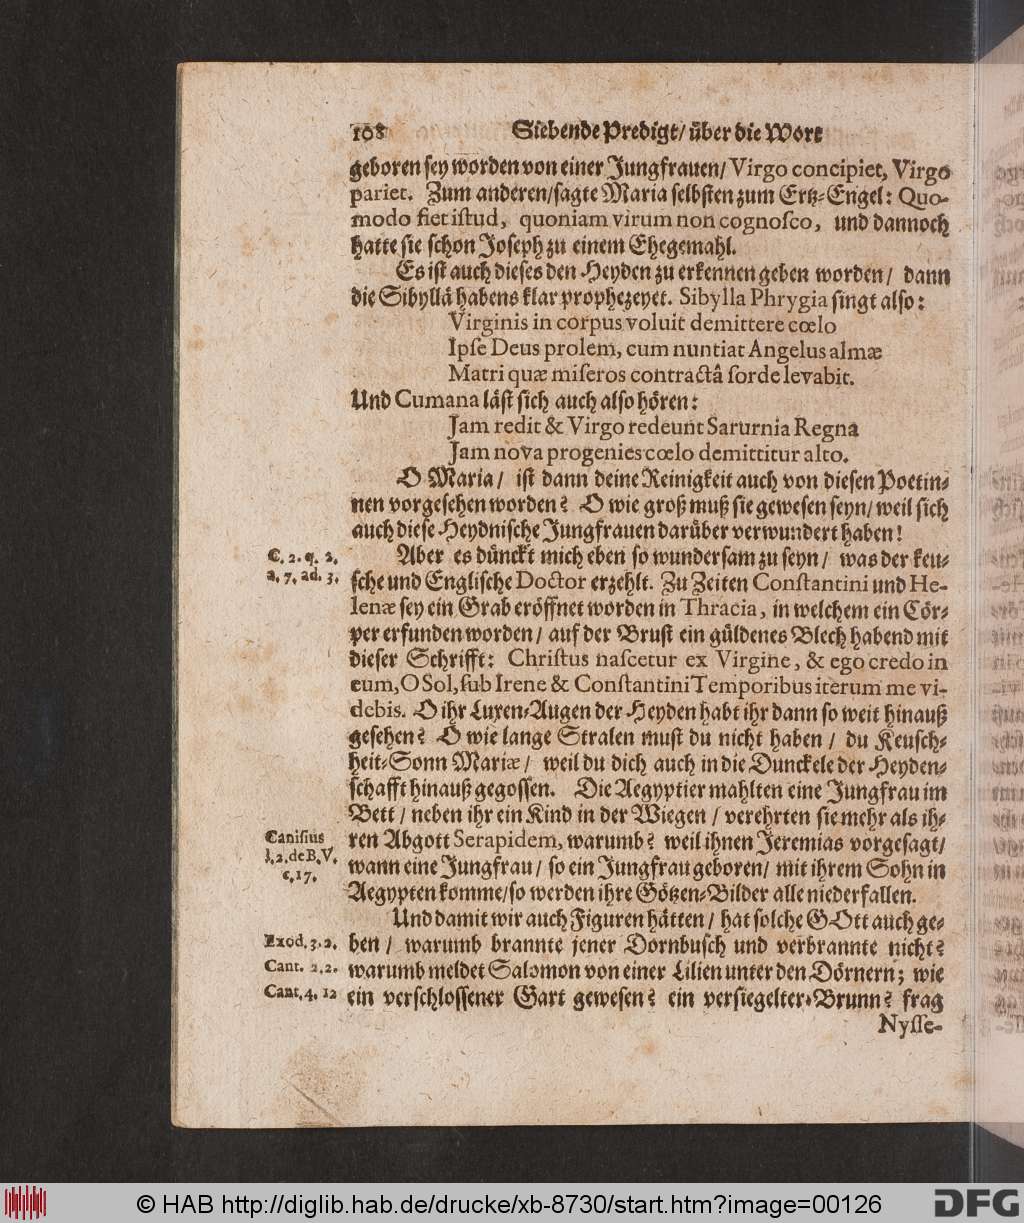 108 Siebende Predigt/ über die Wort
geboren sey worden von einer Jungfrauen/ Virgo concipiet, Virgo
pariet. Zum anderen/ sagte Maria selbsten zum Ertz-Engel: Quo-
modo fiet istud, quoniam virum non cognosco, und dannoch
hatte sie schon Joseph zu einem Ehegemahl.
Es ist auch dieses den Heyden zu erkennen geben worden/ dann
die Sibyllä habens klar prophezeyet. Sibylla Phrygia singt also:
Virginis in corpus voluit demittere cœlo
Ipse Deus prolem, cum nuntiat Angelus almæ
Matri quæ miseros contractâ sorde levabit.
Und Cumana läst sich auch also hören:
Jam redit & Virgo redeunt Sarurnia Regna
Jam nova progenies cœlo demittitur alto.
O Maria/ ist dann deine Reinigkeit auch von diesen Poetin-
nen vorgesehen worden? O wie groß muß sie gewesen seyn/ weil sich
auch diese Heydnische Jungfrauen darüber verwundert haben!
C. 2. q. 2. Aber es dünckt mich eben so wundersam zu seyn/ was der keu-
a. 7. ad. 3. sche und Englische Doctor erzehlt. Zu Zeiten Constantini und He-
lenæ sey ein Grab eröffnet worden in Thracia, in welchem ein Cör-
per erfunden worden/ auf der Brust ein güldenes Blech habend mit
dieser Schrifft: Christus nascetur ex Virgine, & ego credo in
eum, O Sol, sub Irene & Constantini Temporibus iterum me vi-
debis. O ihr Luxen-Augen der Heyden habt ihr dann so weit hinauß
gesehen? O wie lange Stralen must du nicht haben/ du Keusch-
heit-Sonn Mariæ/ weil du dich auch in die Dunckele der Heyden-
schafft hinauß gegossen. Die Aegyptier mahlten eine Jungfrau im
Bett/ neben ihr ein Kind in der Wiegen/ verehrten sie mehr als ih-
Canisius ren Abgott Serapidem, warumb? weil ihnen Jeremias vorgesagt/
l. 2. de B. V. wann eine Jungfrau/ so ein Jungfrau geboren/ mit ihrem Sohn in
c. 17. Aegypten komme/ so werden ihre Götzen-Bilder alle niederfallen.
Und damit wir auch Figuren hätten/ hat solche GOtt auch ge-
Exod. 3. 2. ben/ warumb brannte jener Dornbusch und verbrannte nicht?
Cant. 2. 2. warumb meldet Salomon von einer Lilien unter den Dörnern; wie
Cant. 4. 12 ein verschlossener Gart gewesen? ein versiegelter Brunn? frag
Nysse-
© HAB http://diglib.hab.de/drucke/xb-8730/start.htm?image=00126 DFG